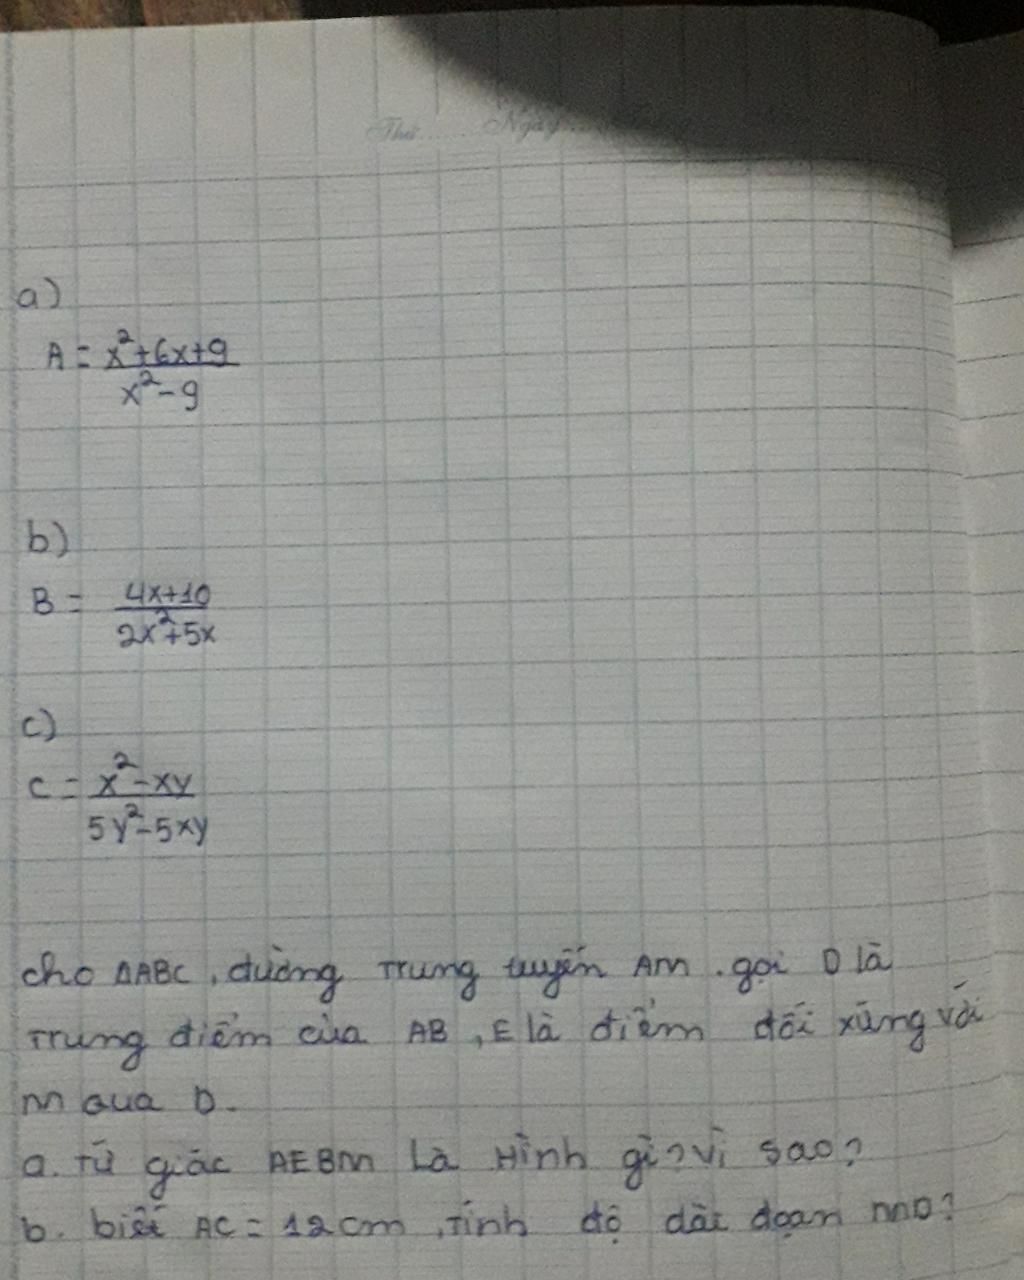 Thứ ...... Ngày ...
a)
A = x²+6x+9 / x²-9
b)
B = 4x+10 / 2x²+5x
c)
C = x²-xy / 5y²-5xy
cho ΔABC, đường Trung tuyến AM. gọi D là
Trung điểm của AB, E là điểm đối xứng với
M qua D.
a. Tứ giác AEBM Là Hình gì? vì sao?
b. biết AC = 12cm, Tính độ dài đoạn MD?